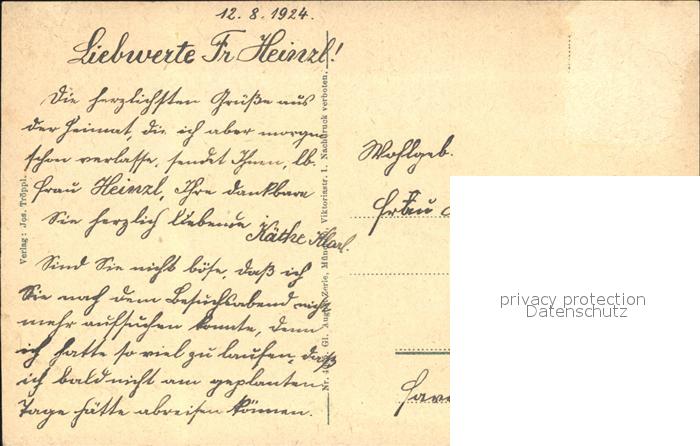 12. 8. 1924.
Liebwerte Fr Heinzl!
Die herzlichsten Grüße aus
der Heimat, die ich aber morgen
schon verlasse, sendet Ihnen, lb.
Frau Heinzl, Ihre dankbare
Sie herzlich liebende
Käthe
Sind Sie nicht böse, daß ich
Sie nach dem Besuchsabend nicht
mehr aufsuchen konnte, denn
ich hatte so viel zu laufen, daß
ich bald nicht am geplanten
Tage hätte abreisen können.
Verlag: Jos. Tröppl.
Viktoriastr. 1. Nachdruck verboten.
Wohlgeb.
Frau
privacy protection
Datenschutz